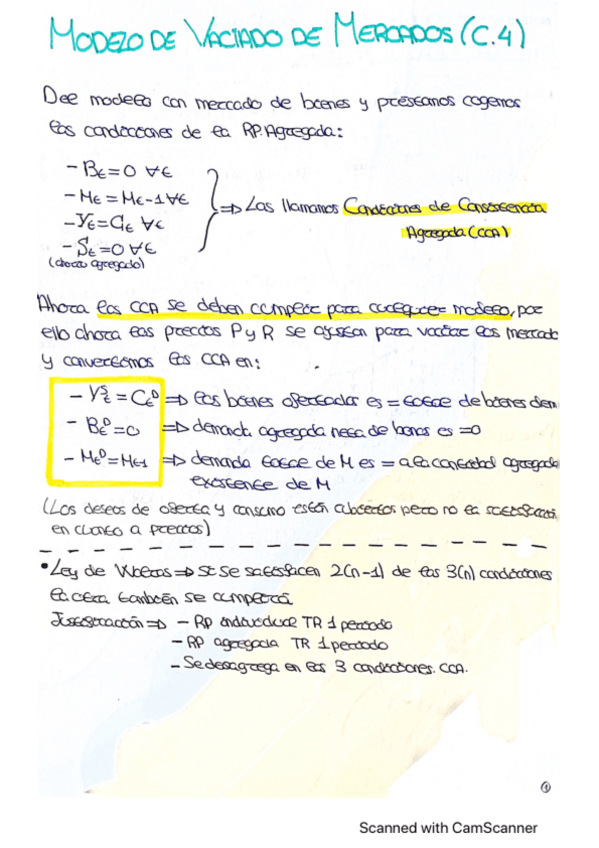 MODELO DE VACIADO DE MERCADOS (C.4)
Del modelo con mercado de bienes y préstamos cogemos
las condiciones de la RP. Agregada:
- Bt = 0 ∀t
- Mt = Mt-1 ∀t
- Yt = Ct ∀t
- St = 0 ∀t
(ahorro agregado)
⇒ Las llamamos Condiciones de Consistencia
Agregada (CCA)
Ahora las CCA se deben cumplir para cualquier modelo, por
ello ahora los precios P y R se ajustan para vaciar los mercado
y convertimos las CCA en:
- Yt^S = Ct^D ⇒ los bienes ofertados es = total de bienes dem
- Bt^D = 0 ⇒ demanda agregada neta de bonos es = 0
- Mt^D = Mt-1 ⇒ demanda total de M es = a la cantidad agregada
existente de M
(Los deseos de oferta y consumo están cubiertos pero no la satisfacción
en cuanto a precios)
• Ley de Walras ⇒ Si se satisfacen 2(n-1) de las 3(n) condiciones
la otra también se cumplirá
Justificación ⇒ - RP individual TR 1 periodo
- RP agregada TR 1 periodo
- Se desagrega en las 3 condiciones. CCA.
1
Scanned with CamScanner